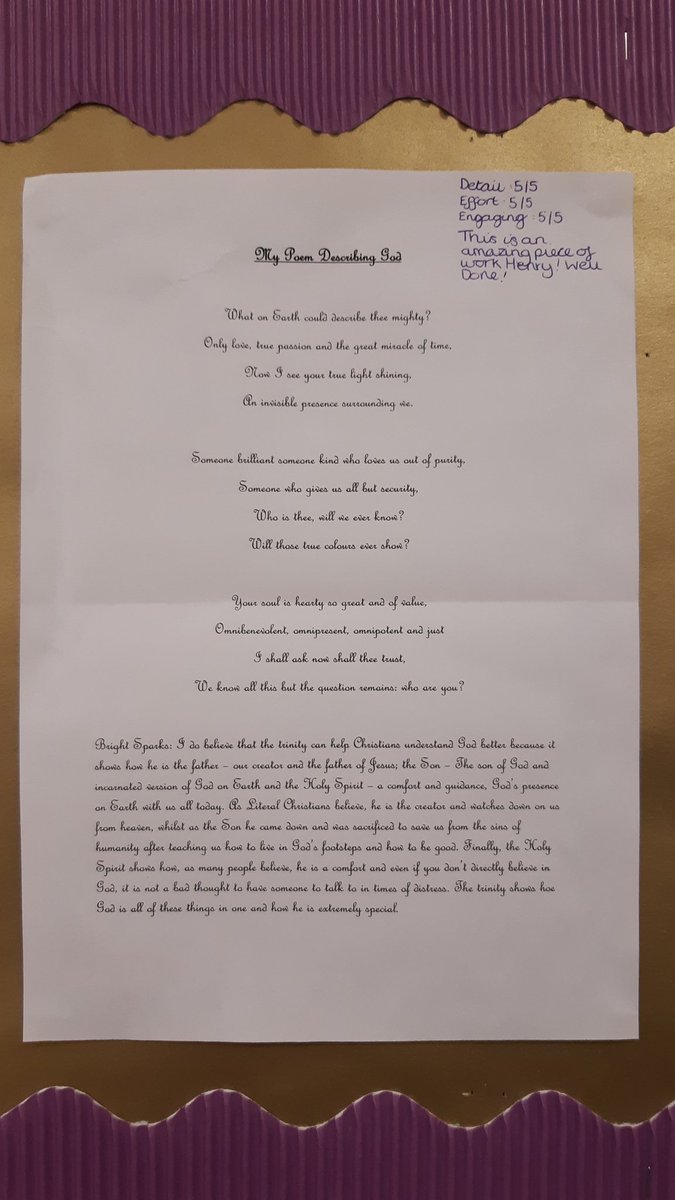 Detail : 5/5
Effort : 5/5
Engaging : 5/5
This is an
amazing piece of
work Henry! Well
Done!
My Poem Describing God
What on Earth could describe thee mighty?
Only love, true passion and the great miracle of time,
Now I see your true light shining,
An invisible presence surrounding we.
Someone brilliant someone kind who loves us out of purity,
Someone who gives us all but security,
Who is thee, will we ever know?
Will those true colours ever show?
Your soul is hearty so great and of value,
Omnibenevolent, omnipresent, omnipotent and just
I shall ask now shall thee trust,
We know all this but the question remains: who are you?
Bright Sparks: I do believe that the trinity can help Christians understand God better because it
shows how he is the father – our creator and the father of Jesus; the Son – The son of God and
incarnated version of God on Earth and the Holy Spirit – a comfort and guidance, God's presence
on Earth with us all today. As Literal Christians believe, he is the creator and watches down on us
from heaven, whilst as the Son he came down and was sacrificed to save us from the sins of
humanity after teaching us how to live in God's footsteps and how to be good. Finally, the Holy
Spirit shows how, as many people believe, he is a comfort and even if you don't directly believe in
God, it is not a bad thought to have someone to talk to in times of distress. The trinity shows hoe
God is all of these things in one and how he is extremely special.